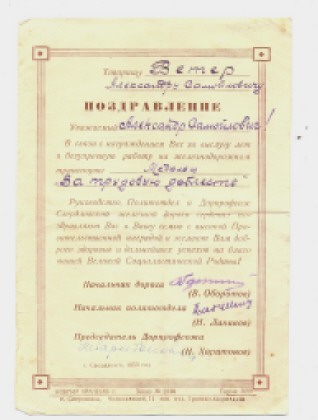 Товарищу Ветер
Александру Самойловичу
ПОЗДРАВЛЕНИЕ
Уважаемый Александр Самойлович!
В связи с награждением Вас за выслугу лет
и безупречную работу на железнодорожном
транспорте Медалью
"За трудовую доблесть"
Руководство, Политотдел и Дорпрофсож
Свердловской железной дороги сердечно поз-
дравляют Вас и Вашу семью с высокой Прави-
тельственной наградой и желают Вам доб-
рого здоровья и дальнейших успехов на благо
нашей Великой Социалистической Родины!
Начальник дороги
Начальник политотдела
Председатель Дорпрофсожа
(Н. Харитонов)
г. Свердловск